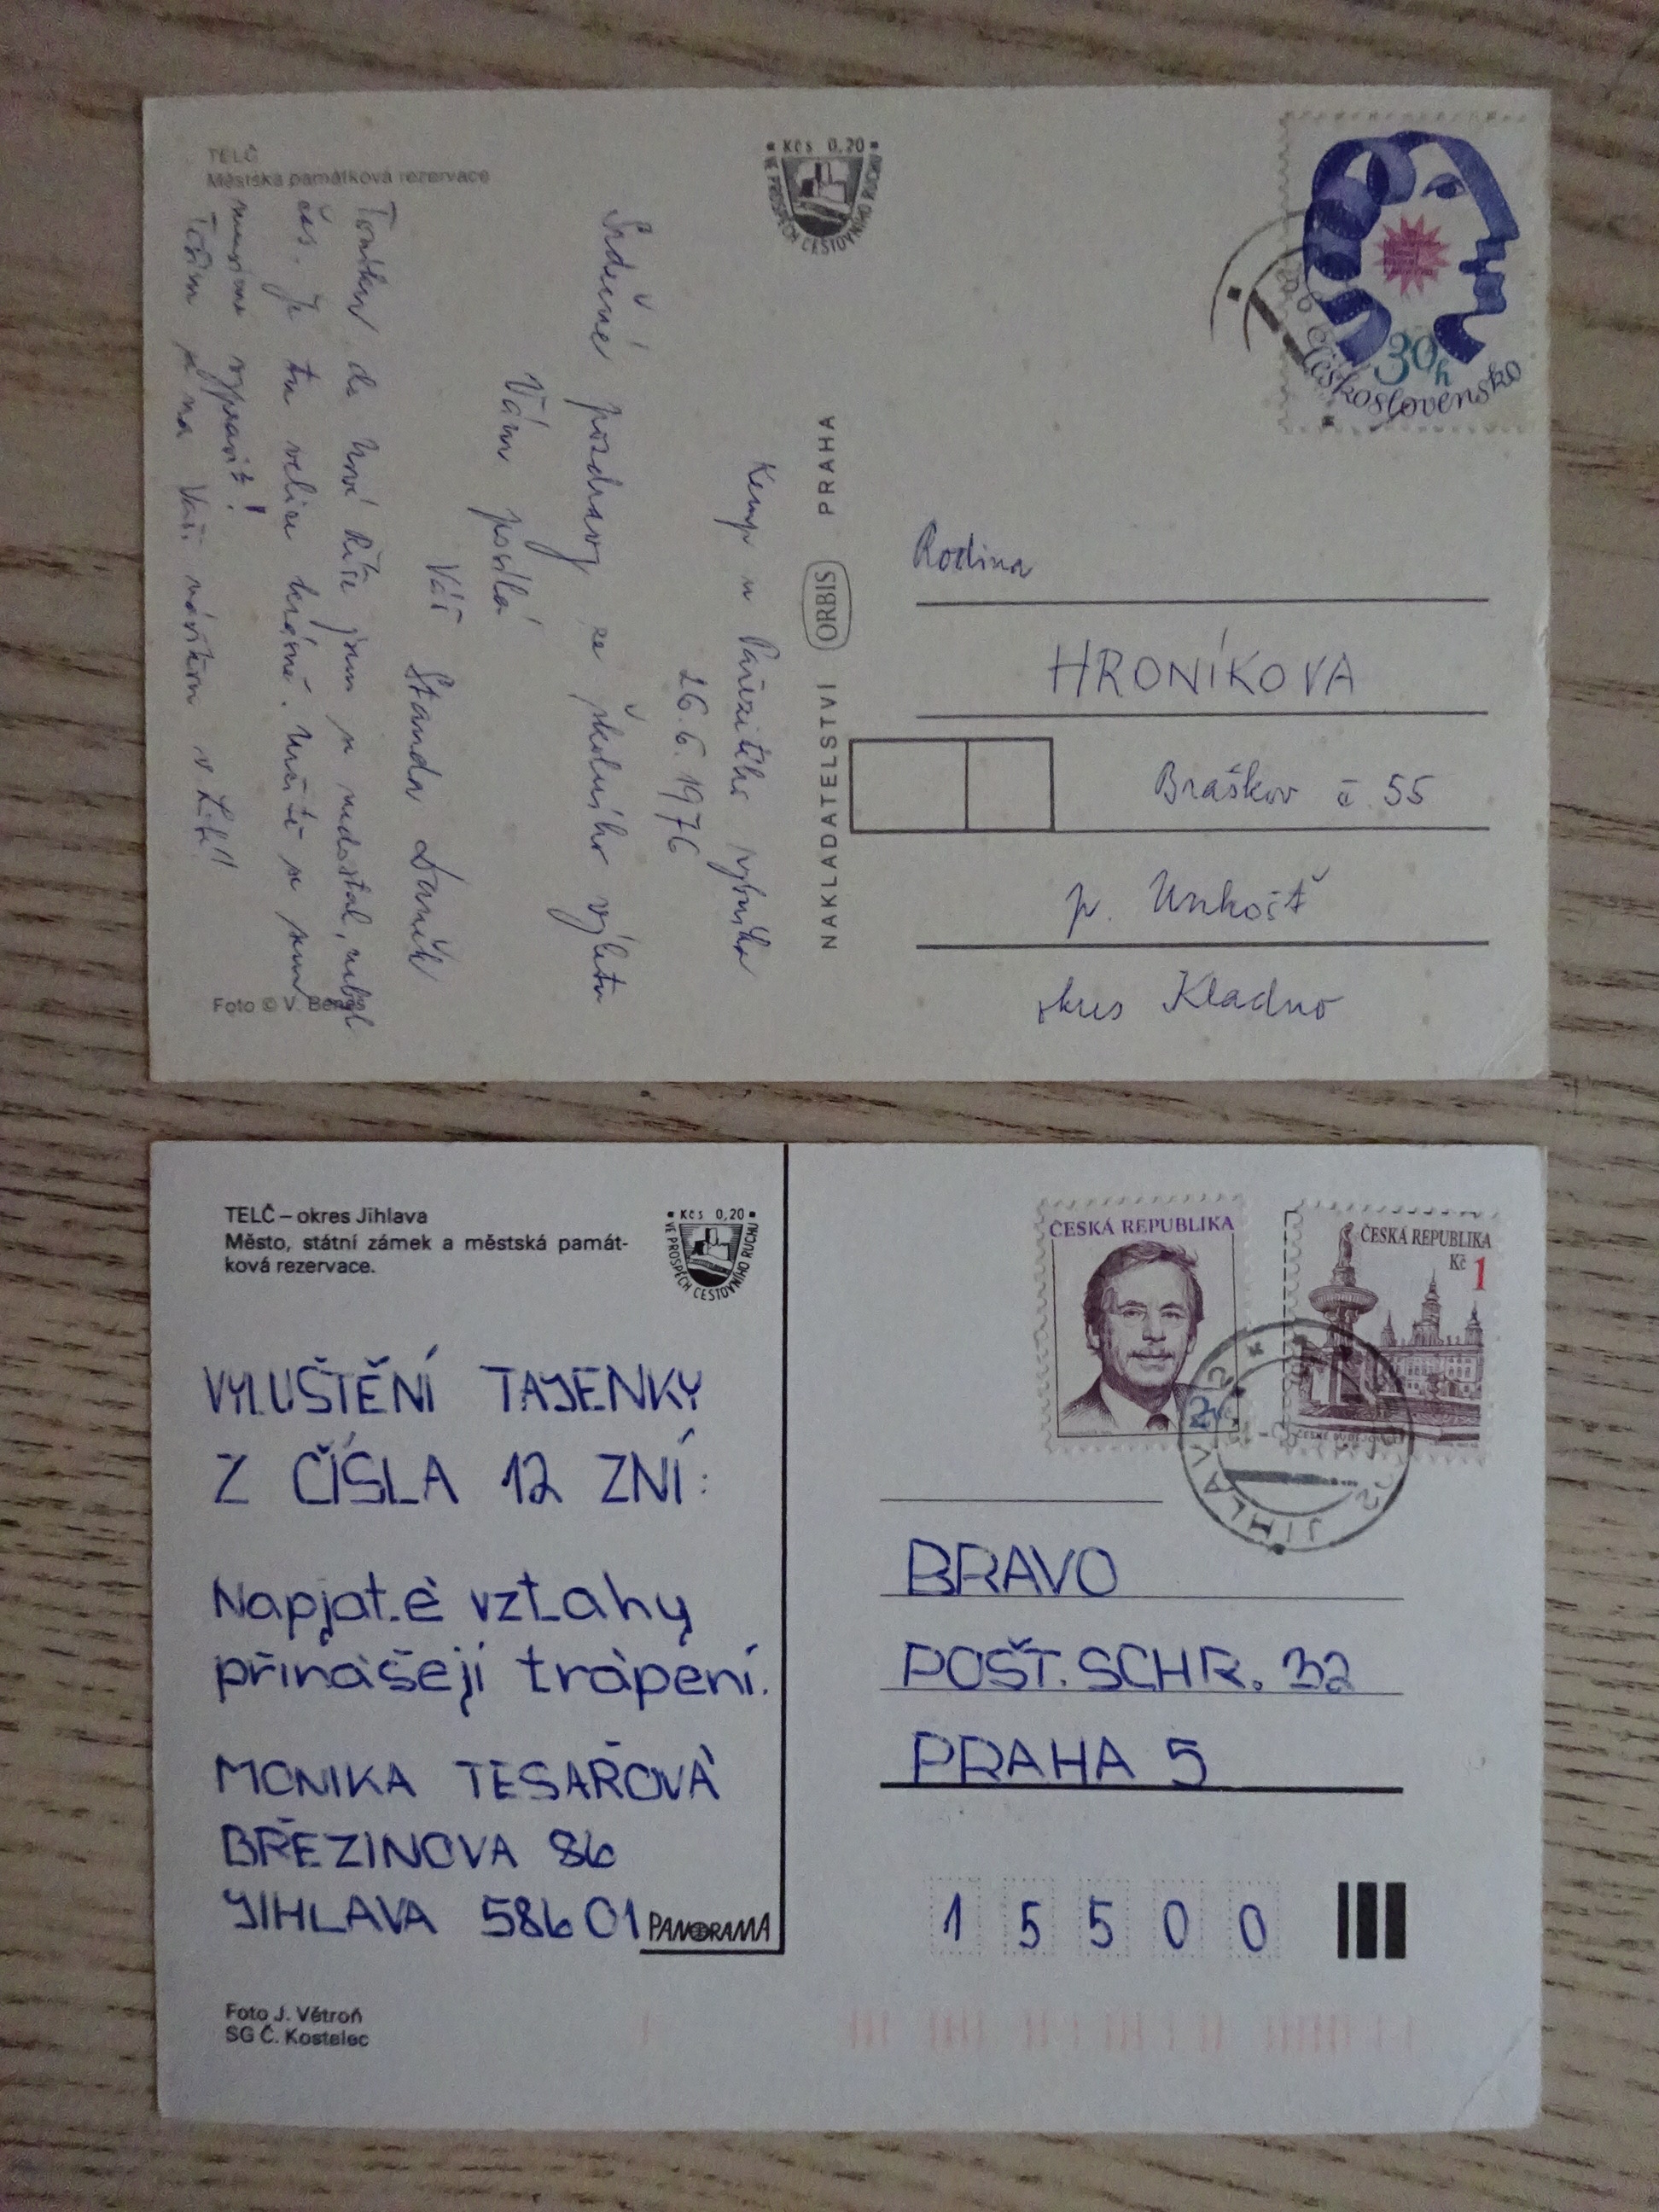 TELČ
Městská památková rezervace
• Kčs 0,20 •
VE PROSPĚCH CESTOVNÍHO RUCHU
30h
Československo
Kemp u Pařezitého rybníka
26.6.1976
Srdečné pozdravy ze školního výletu
Vám posílá
Váš Standa
Toníku, do Nové Říše jsem se nedostal, nebyl
čas. Je tu velice krásně. Určitě se sem
musíme vypravit!
Těším se na Vaši návštěvu v
Foto © V. Beneš
NAKLADATELSTVÍ ORBIS PRAHA
Rodina
HRONÍKOVA
Braškov č 55
p. Unhošť
okres Kladno
TELČ – okres Jihlava
Město, státní zámek a městská památ-
ková rezervace.
• Kčs 0,20 •
VE PROSPĚCH CESTOVNÍHO RUCHU
VYLUŠTĚNÍ TAJENKY
Z ČÍSLA 12 ZNÍ:
Napjaté vztahy
přinášejí trápení.
MONIKA TESAŘOVÁ
BŘEZINOVA 86
JIHLAVA 58601
PANORAMA
Foto J. Větroň
SG Č. Kostelec
ČESKÁ REPUBLIKA
ČESKÁ REPUBLIKA
Kč 1
JIHLAVA
BRAVO
POŠT. SCHR. 32
PRAHA 5
15500